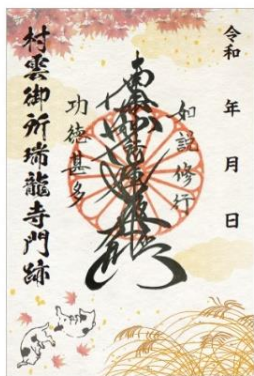 令和　年　月　日
如説修行
南無妙法蓮華経
功徳甚多
村雲御所瑞龍寺門跡